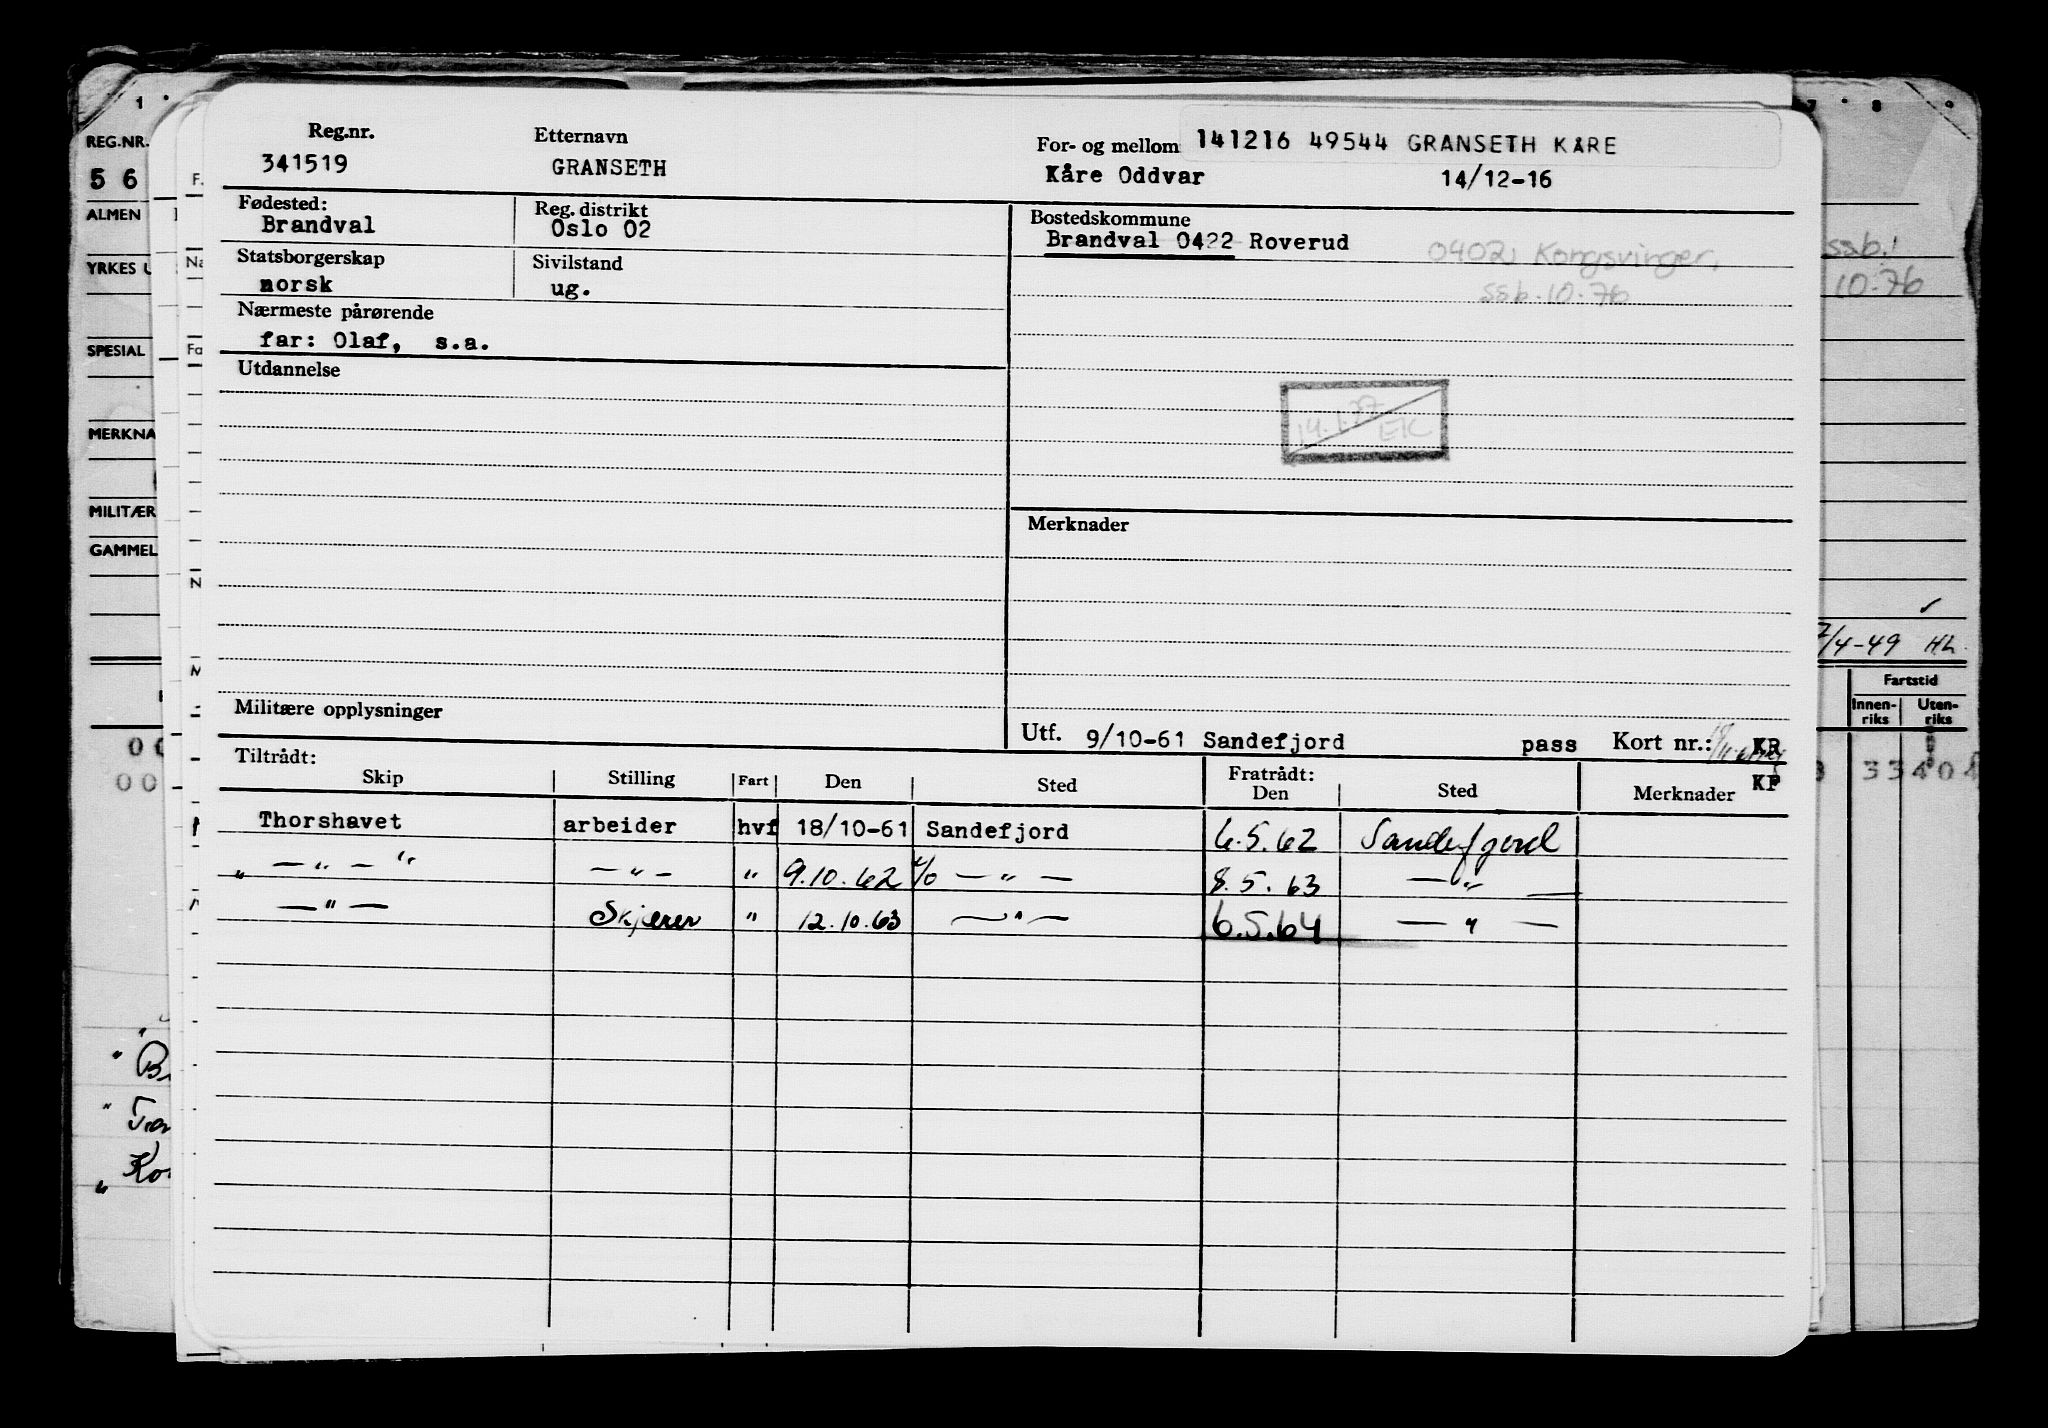 Reg.nr. Etternavn For- og mellom 141216 49544 GRANSETH KÅRE
341519 GRANSETH Kåre Oddvar 14/12-16
Fødested: Reg. distrikt Bostedskommune
Brandval Oslo 02 Brandval 0422 Roverud
0402 Kongsvinger,
ssb. 10.76
Statsborgerskap Sivilstand
norsk ug.
Nærmeste pårørende
far: Olaf, s.a.
Utdannelse
14.1.77
EK
Merknader
Militære opplysninger
Utf. 9/10-61 Sandefjord pass Kort nr.: KR
KP
Tiltrådt: Fratrådt:
Skip Stilling Fart Den Sted Den Sted Merknader
Thorshavet arbeider hvf 18/10-61 Sandefjord 6.5.62 Sandefjord
„ — „ — " — „ — " 9.10.62 — „ — 8.5.63 — „ —
— „ — Skjærer " 12.10.63 — „ — 6.5.64 — „ —
1
REG.NR.
5 6
ALMEN
YRKES U
SPESIAL
MERKNA
MILITÆR
GAMMEL
7 8 9
ssb.
10.76
/4-49 HL.
Fartstid
Innen-
riks
Uten-
riks